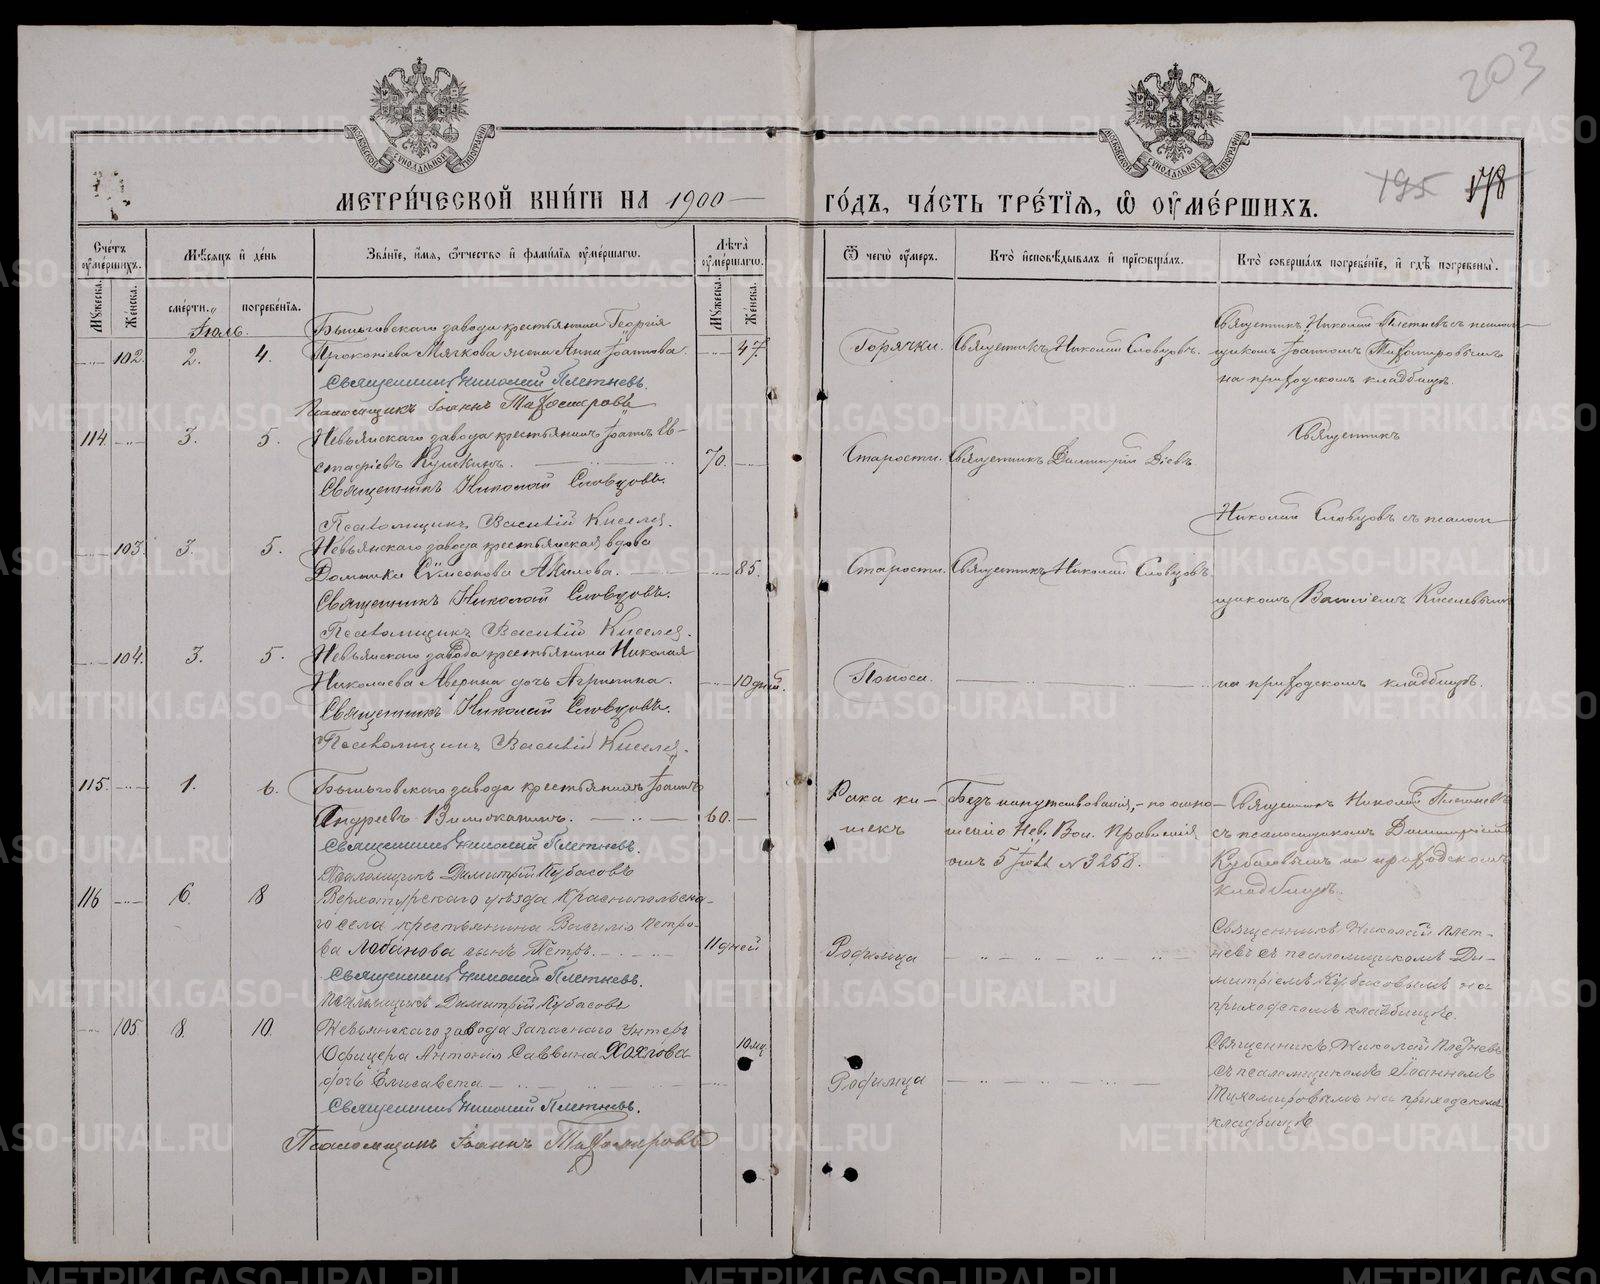 203
МОСКОВСКОЙ СѴНОДАЛЬНОЙ ТИПОГРАФІИ
МОСКОВСКОЙ СѴНОДАЛЬНОЙ ТИПОГРАФІИ
МЕТРИ́ЧЕСКОЙ КНИ́ГИ НА 1900
ГО́ДЪ, ЧА́СТЬ ТРЕ́ТІѦ, Ѡ҆ ОУ҆МЕ́РШИХЪ.
195 178
Сче́тъ оу҆ме́ршихъ.
Мѣ́сѧцъ и҆ де́нь
Зва́нїе, и҆́мѧ, ѻ҆́тчество и҆ фами́лїѧ оу҆ме́ршагѡ.
Лѣ́та оу҆ме́ршагѡ.
Ѿ чегѡ̀ оу҆́меръ.
Кто̀ и҆сповѣ́дывалъ и҆ прїѡбща́лъ.
Кто̀ соверша́лъ погребе́нїе, и҆ гдѣ̀ погребены̀.
Мꙋ́жеска.
Же́нска.
сме́рти.
погребе́нїѧ.
Мꙋ́жеска.
Же́нска.
Іюль.
Быньговскаго завода крестьянина Георгія
102. 2. 4. Прокопіева Мячкова жена Анна Іоаннова. 47.
Священникъ Николай Плетневъ.
Псаломщикъ Іоаннъ Тихомировъ
Горячки. Священникъ Николай Словцовъ.
Священникъ Николай Плетневъ с псалом-
щикомъ Іоанномъ Тихомировымъ
на приходскомъ кладбищѣ.
114. 3. 5. Невьянскаго завода крестьянинъ Іоаннъ Ев-
стафіевъ Кушкинъ. 70.
Священникъ Николай Словцовъ.
Псаломщикъ Василій Киселев.
Старости. Священникъ Димитрій Діевъ
Священникъ
Николай Словцовъ съ псалом-
103. 3. 5. Невьянскаго завода крестьянская вдова
Домника Сѵмеонова Акилова. 85.
Священникъ Николай Словцовъ.
Псаломщикъ Василій Киселев.
Старости. Священникъ Николай Словцовъ
щикомъ Василіемъ Киселевымъ
104. 3. 5. Невьянскаго завода крестьянина Николая
Николаева Аверина дочь Агрипина. 10 дней.
Священникъ Николай Словцовъ.
Псаломщикъ Василій Киселев.
Поноса.
на приходскомъ кладбищѣ.
115. 1. 6. Быньговскаго завода крестьянинъ Іоаннъ
Андреевъ 60.
Священникъ Николай Плетневъ.
Псаломщикъ Димитрій Кубасовъ
Рака ки-
шекъ
Безъ напутствованія, - по отно-
шенію Нев. Вол. Правленія
отъ 5 Іюля № 3258.
Священникъ Николай Плетневъ
съ псаломщикомъ Димитріемъ
Кубасовымъ на приходскомъ
кладбищѣ.
116 6. 8 Верхотурскаго уѣзда Краснопольска-
го села крестьянина Василія Петро-
ва Лобанова сынъ Петръ. 11 дней
Священникъ Николай Плетневъ.
псаломщикъ Димитрій Кубасовъ
Родимца
Священникъ Николай Плет-
невъ съ псаломщикомъ Ди-
митріемъ Кубасовымъ на
приходскомъ кладбищѣ.
105 8. 10 Невьянскаго завода запаснаго унтеръ
Офицера Антонія Саввина Хохлова 10 мц.
дочь Елисавета
Священникъ Николай Плетневъ.
Псаломщикъ Іоаннъ Тихомировъ
Родимца
Священникъ Николай Плетневъ
съ псаломщикомъ Іоанномъ
Тихомировымъ на приходскомъ
кладбищѣ
METRIKI.GASO-URAL.RU